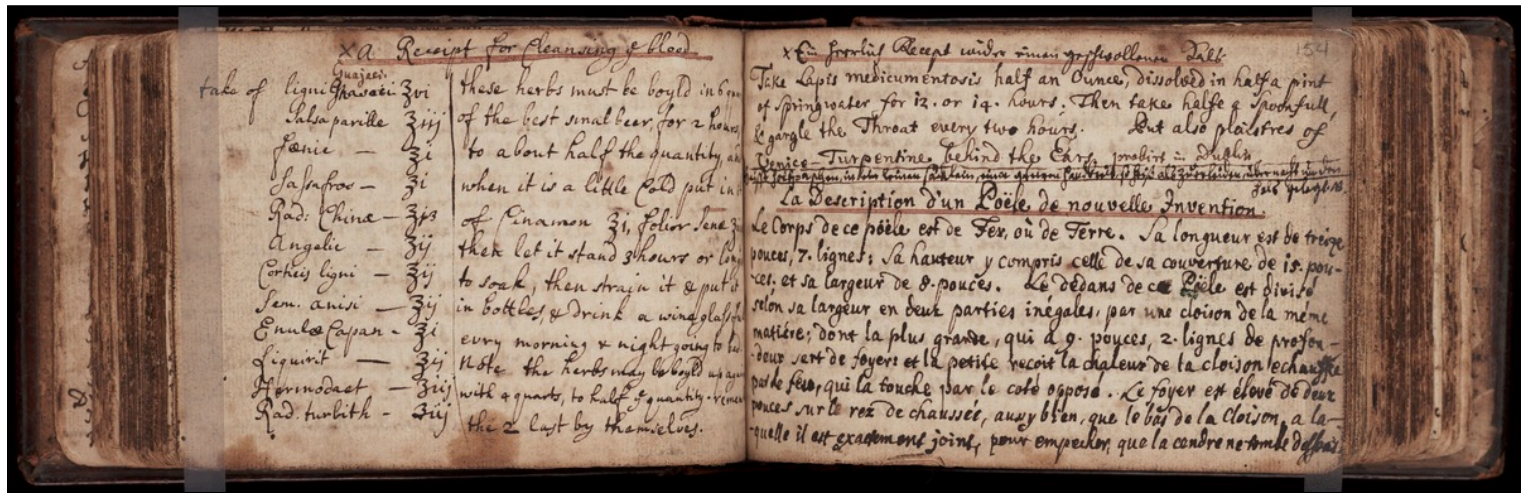 x a Receipt for Cleansing ye blood
Guajaci.
take of ligni ℥vi
Salsaparille ℥iij
Fænic — ℥i
Sassafras — ℥i
Rad: Chinæ — ℥iß
Angelic — ℥ij
Corticis ligni — ℥ij
Sem. anisi — ℥ij
Enulæ Capan - ℥i
Liquirit — ℥ij
Hermodact — ℥iij
Rad: turbith - ℥iij
these herbs must be boyld in 6
of the best smal beer, for 2 hours,
to about half the quantity,
when it is a little Cold put in
of Cinamon ℥i, folior Senæ
then let it stand 3 hours or
to soak, then strain it & put it
in bottles, & drink a wine glass
evry morning & night going to bed
Note the herbs may be boyld up
with 4 quarts, to half ye quantity.
the 2 last by themselves.
154
x Ein herrlich Recept wider einen geschwollenen Halß
Take Lapis medicumentosis half an Ounce, dissolved in half a pint
of Spring water for 12. or 14. hours. Then take halfe a Spoonfull,
& gargle the Throat every two hours. But also plaistres of
Venice-Turpentine behind the Ears. probirt in Dublin
La Description d'un Poële de nouvelle Invention.
Le Corps de ce pöële est de Fer, où de Terre. Sa longueur est de treize
pouces, 7. lignes: Sa hauteur y compris celle de sa couverture de 15. pou-
-ces. et sa largeur de 8. pouces. Le dedans de ce Pöële est divisé
selon sa largeur en deux parties inégales, par une cloison de la méme
matiére; dont la plus grande, qui a 9. pouces, 2. lignes de profon-
-deur sert de foyer: et la petite recoit la chaleur de la cloison echauffée
par le feu, qui la touche par le coté opposé. Le foyer est élevé de deux
pouces sur le rez de chaussée, aussy bien, que le bas de la Cloison, a la-
-quelle il est exactement joint, pour empecher, que la cendre ne tombe